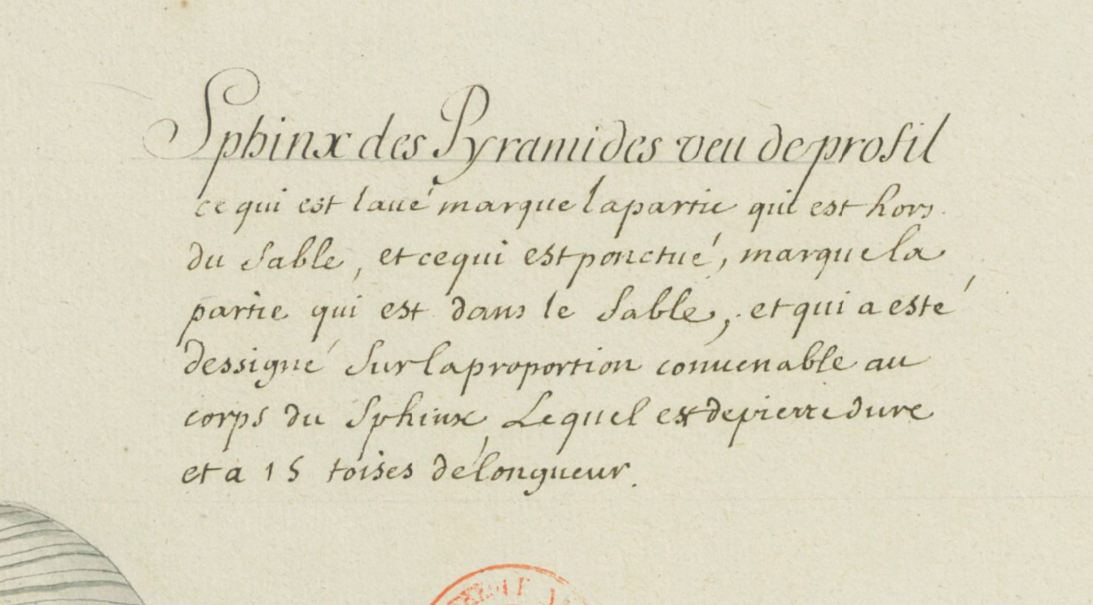 Sphinx des Pyramides veu de profil
ce qui est laué marque la partie qui est hors
du sable, et ce qui est ponctué, marque la
partie qui est dans le sable, et qui a esté
dessigné sur la proportion conuenable au
corps du sphinx, Lequel est de pierre dure
et a 15 toises de longueur.